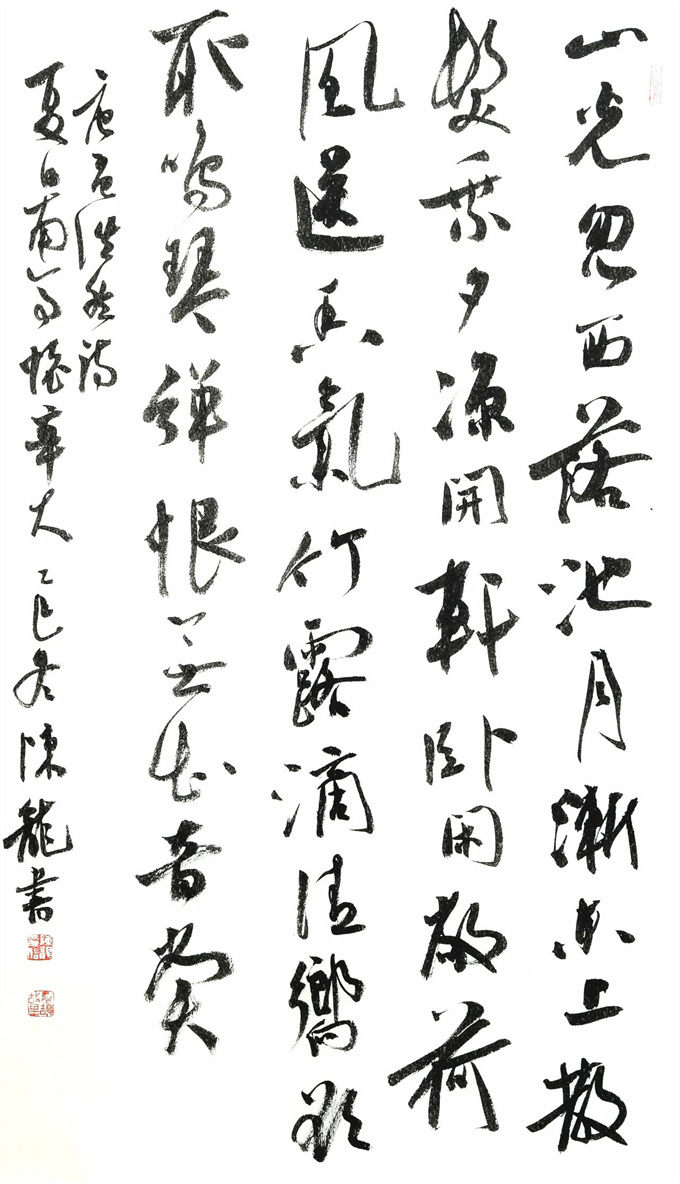 山光忽西落池月漸東上散
髮乘夕涼開軒臥閑敞荷
風送香氣竹露滴清響欲
取鳴琴彈恨無知音賞
唐孟浩然詩
夏日南亭懷辛大 乙巳冬 陳龍書